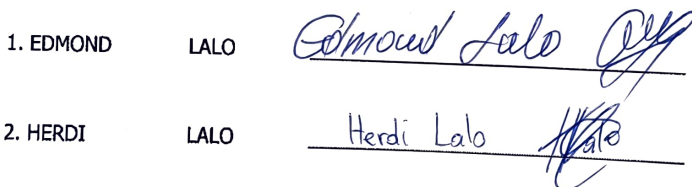 1. EDMOND LALO Edmond Lalo
2. HERDI LALO Herdi Lalo